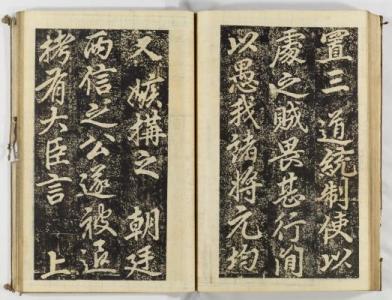 置三道統制使以
處之賊畏甚行間
以愚我諸将元均
又嫉搆之 朝廷
兩信之公遂被逭
拷有大臣言 上